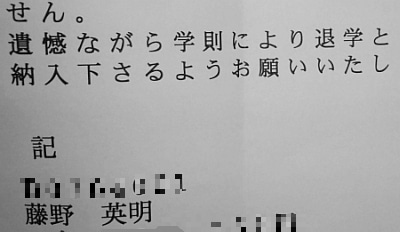 せん。
遺憾ながら学則により退学と
納入下さるようお願いいたし
記
藤野　英明